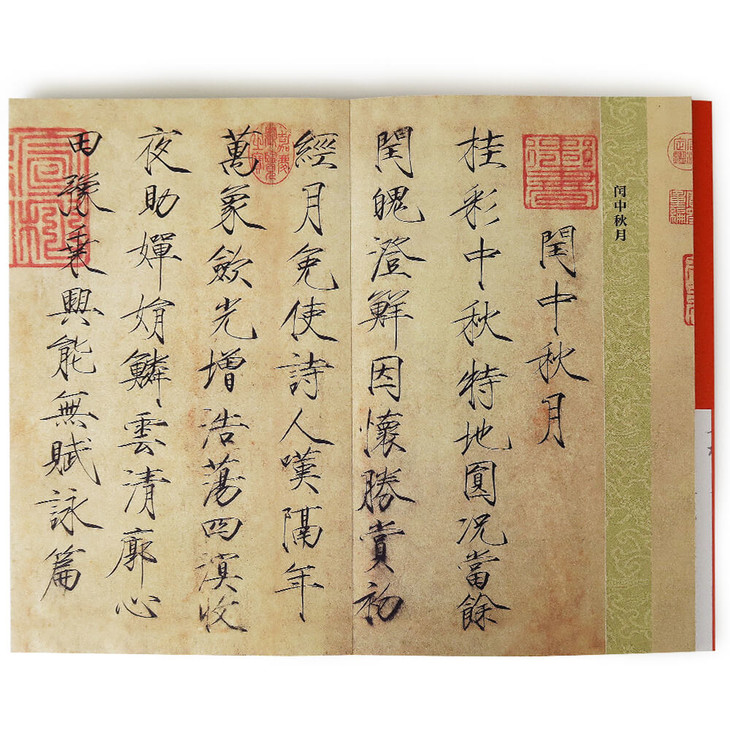 闰中秋月
閏中秋月
桂彩中秋特地圓況當餘
閏魄澄鮮因懷勝賞初
經月免使詩人嘆隔年
萬象歛光增浩蕩四溟收
夜助嬋娟鱗雲清廓心
田豫乗興能無賦詠篇